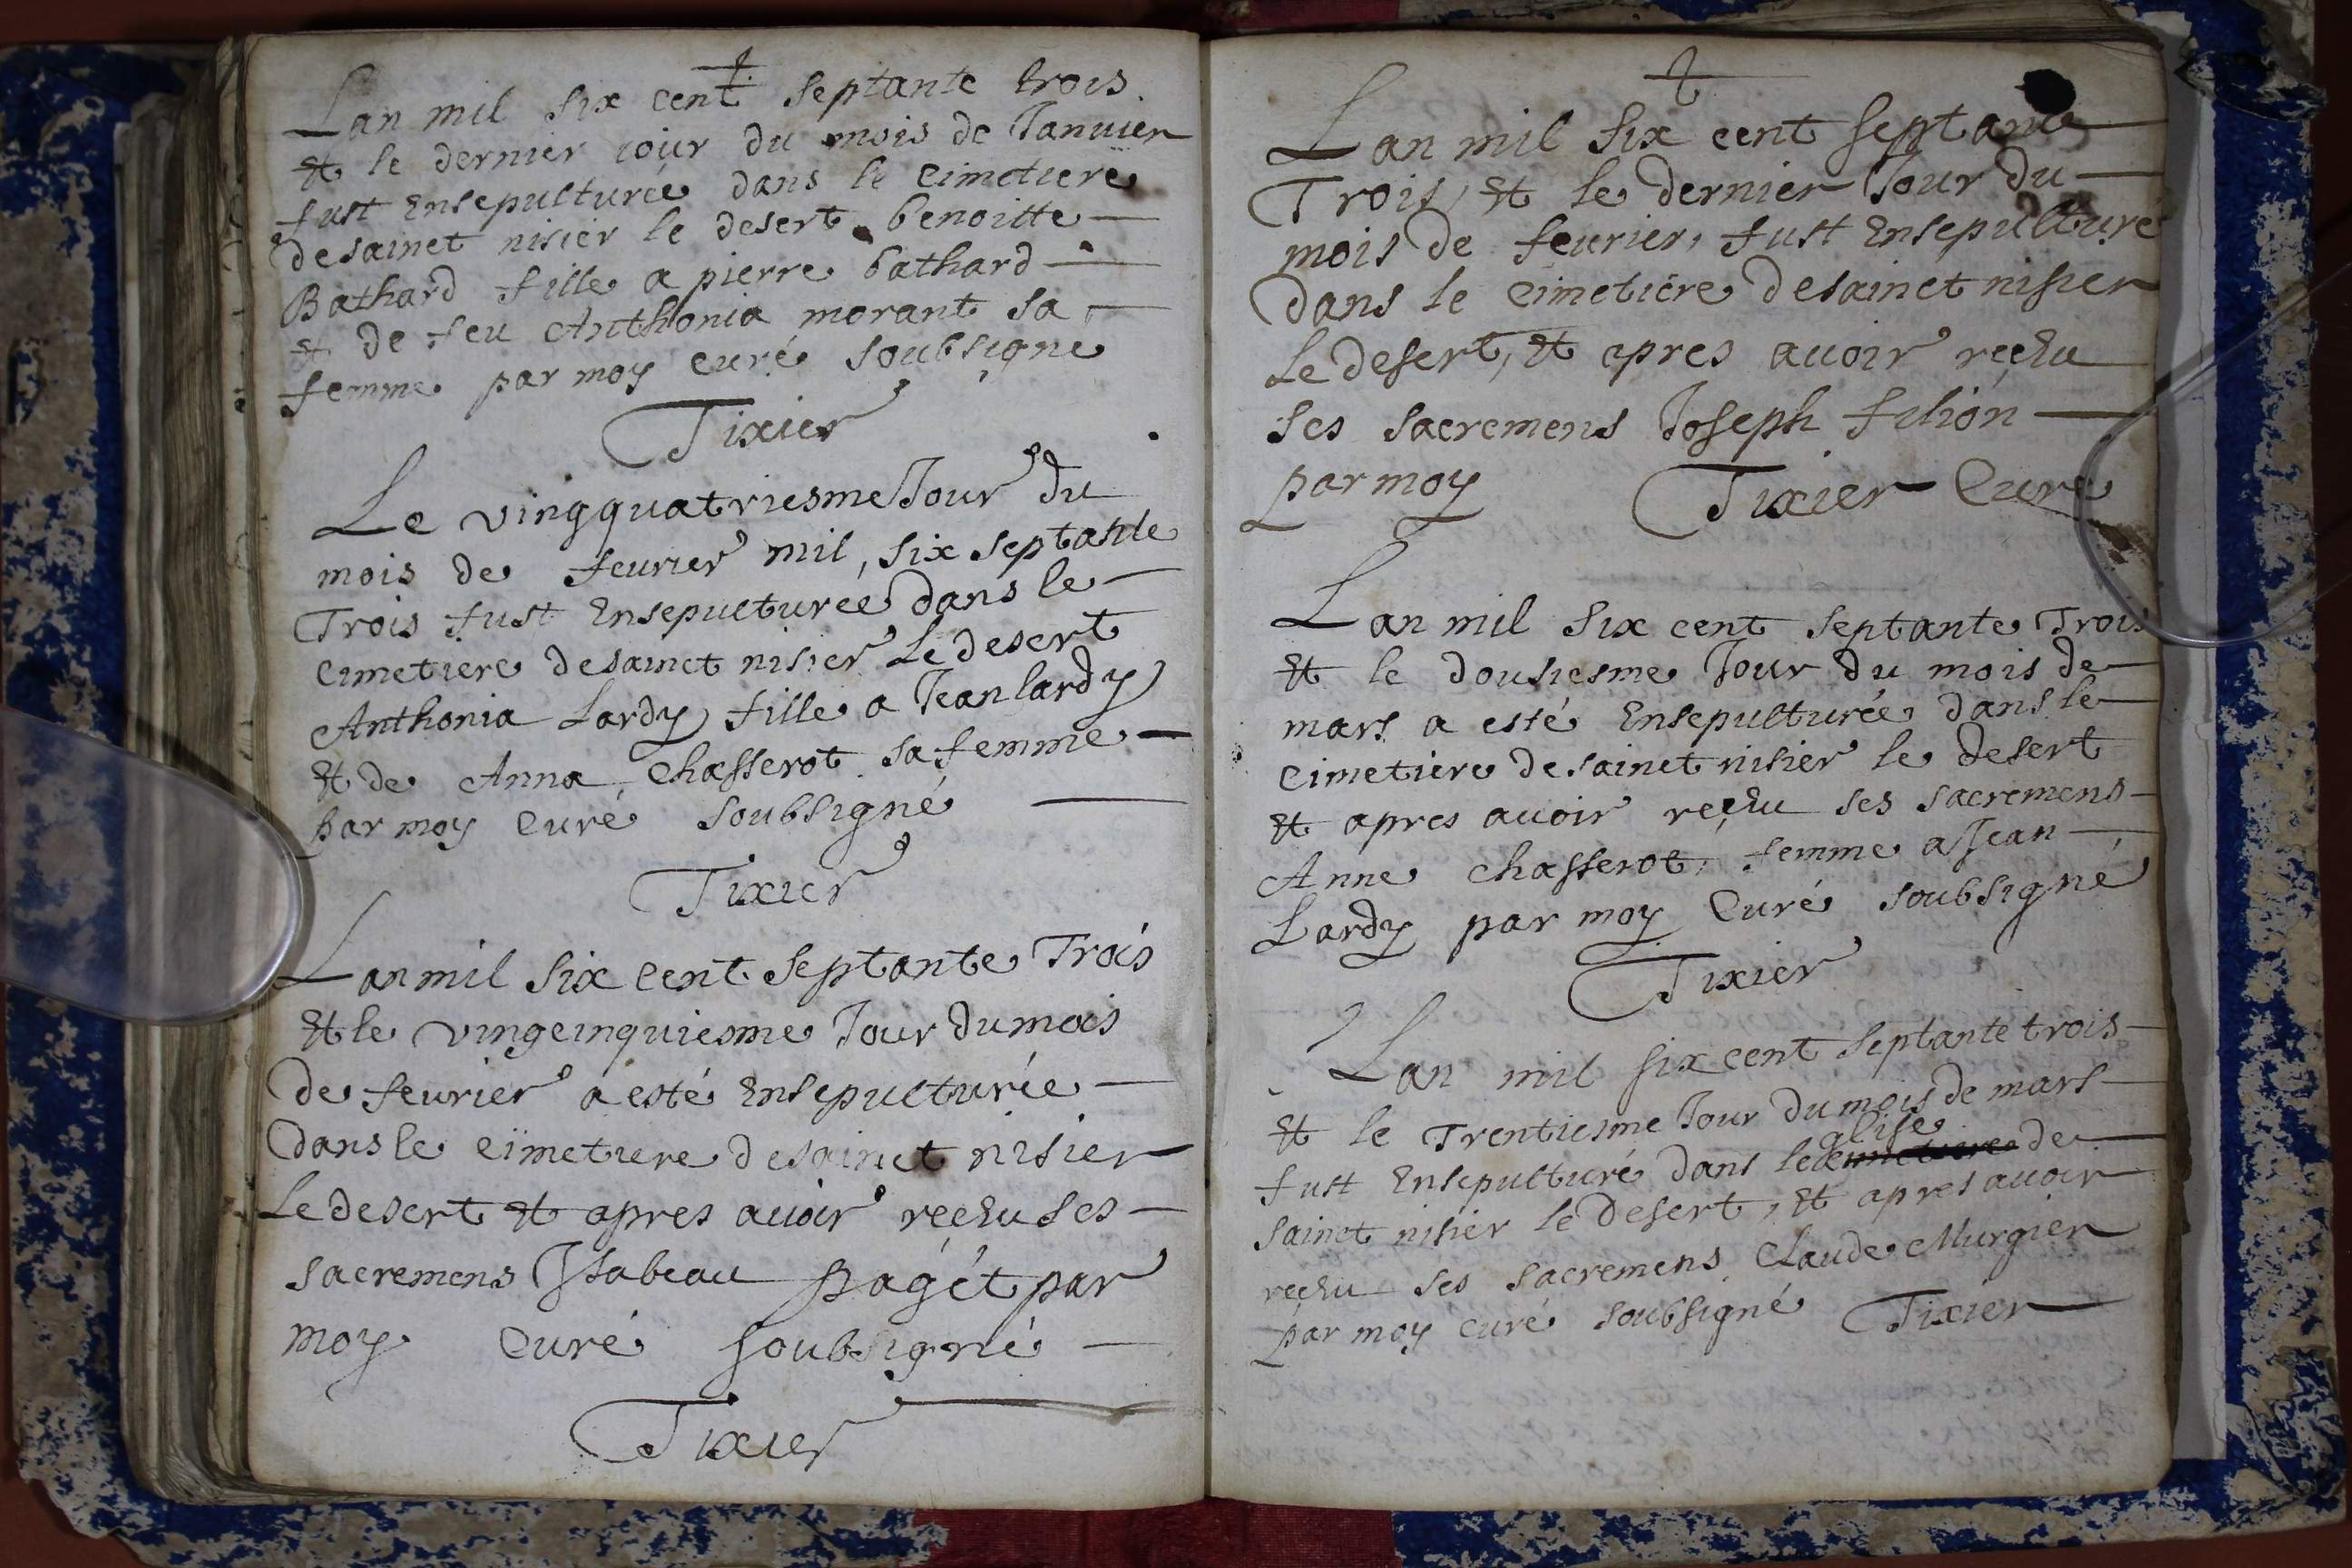 Lan mil six cent septante trois
et le dernier iour du mois de Januier
fust Ensepulturée dans le cimetiere
desainct nisier le desert benoitte
Bathard fille a pierre bathard
et de feu Anthonia morant sa
femme par moy curé soubsigne
Tixier
Le vingquatriesme Jour du
mois de feurier mil, six septante
Trois fust Ensepulturée dans le
cimetiere desainct nisier Le desert
Anthonia Lardy fille a Jean lardy
et de Anna Chasserot sa femme
par moy Curé soubsigné
Tixier
Lan mil six cent septante Trois
et le vingcinquiesme Jour du mois
de feurier a esté Ensepulturée
dans le cimetiere desainct nisier
Le desert et apres auoir reçeu ses
sacremens Isabeau pagét par
moy Curé soubsigné
Tixier
Lan mil six cent septante
Trois, et le dernier Jour du
mois de feurier, fust Ensepulturé
dans le cimetiére desainct nisier
Le desert, et apres auoir reçeu
ses sacremens Joseph filion
par moy Tixier Curé
Lan mil six cent septante Trois
et le dousiesme Jour du mois de
mars a esté Ensepulturée dans le
cimetiere desainct nisier le desert
et apres auoir reçeu ses sacremens
Anne chasserot, femme a Jean
Lardy par moy Curé soubsigné
Tixier
Lan mil six cent septante trois
et le Trentiesme Jour du mois de mars
glise
fust Ensepulturé dans lecimetiere de
sainct nisier le desert, et apres auoir
reçeu ses sacremens Claude Murgier
par moy curé soubsigné Tixier